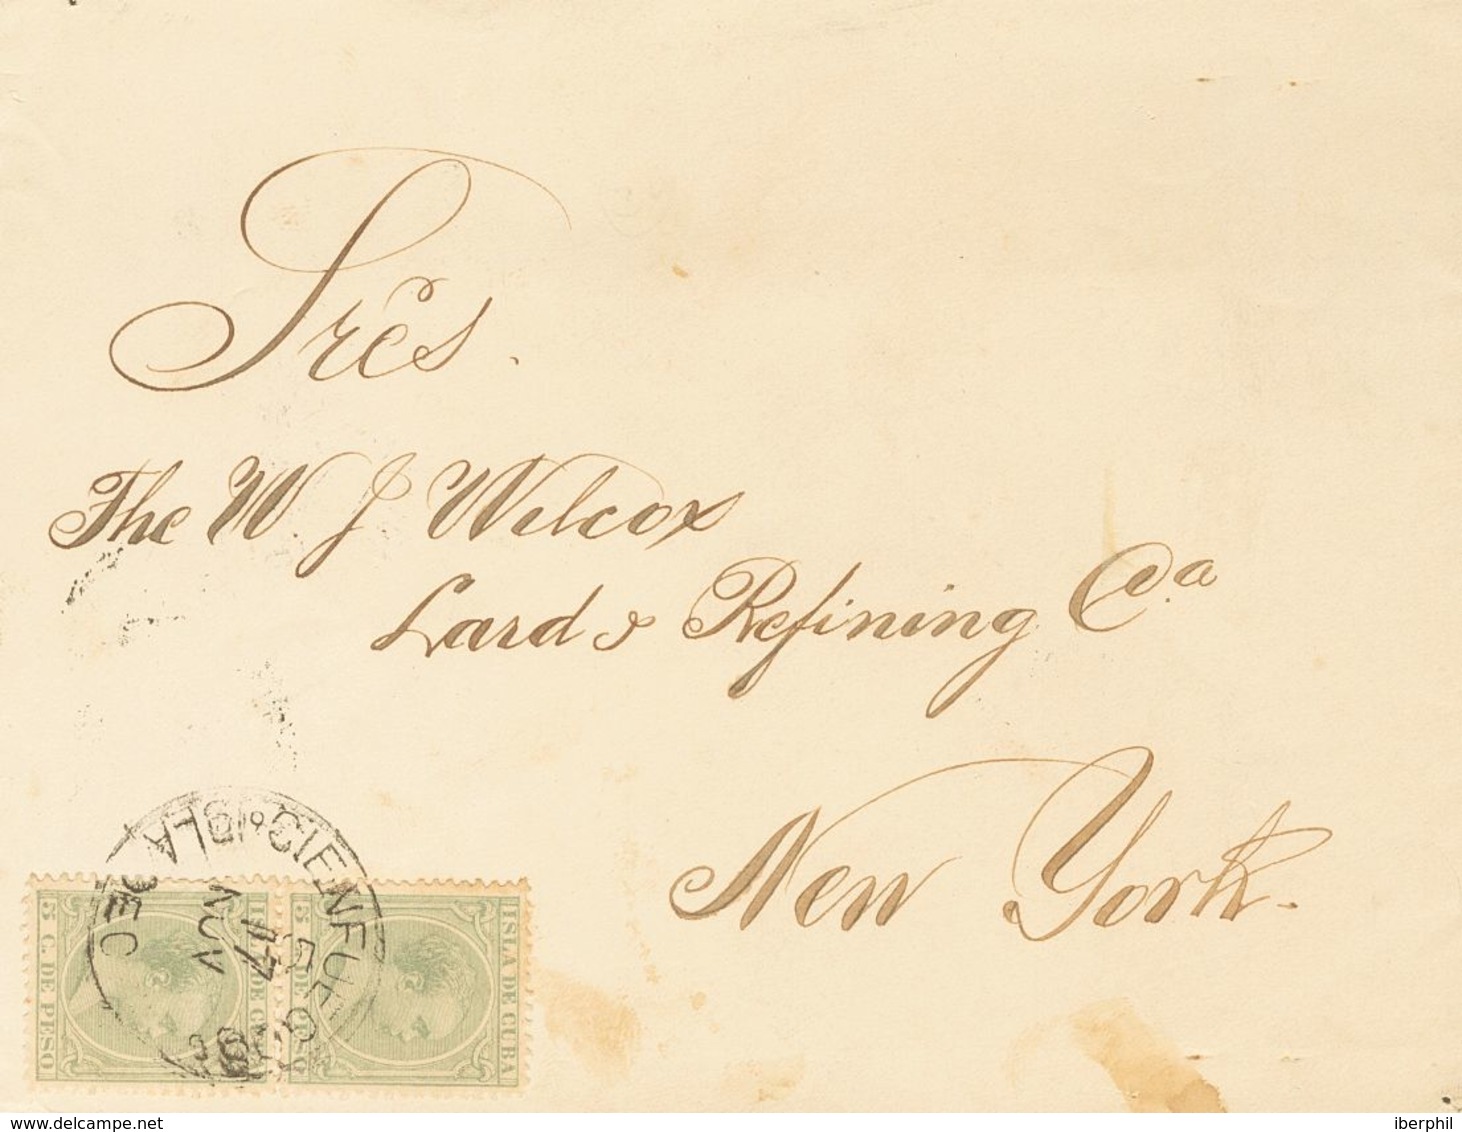 Sres.
The W J Wilcox
Lard & Refining Ca.
New York.
CIENFUEGOS
ISLA DE C
17
NOV
ISLA DE CUBA
5 C. DE PESO
5 C. DE PESO
delcampe.net
iberphil